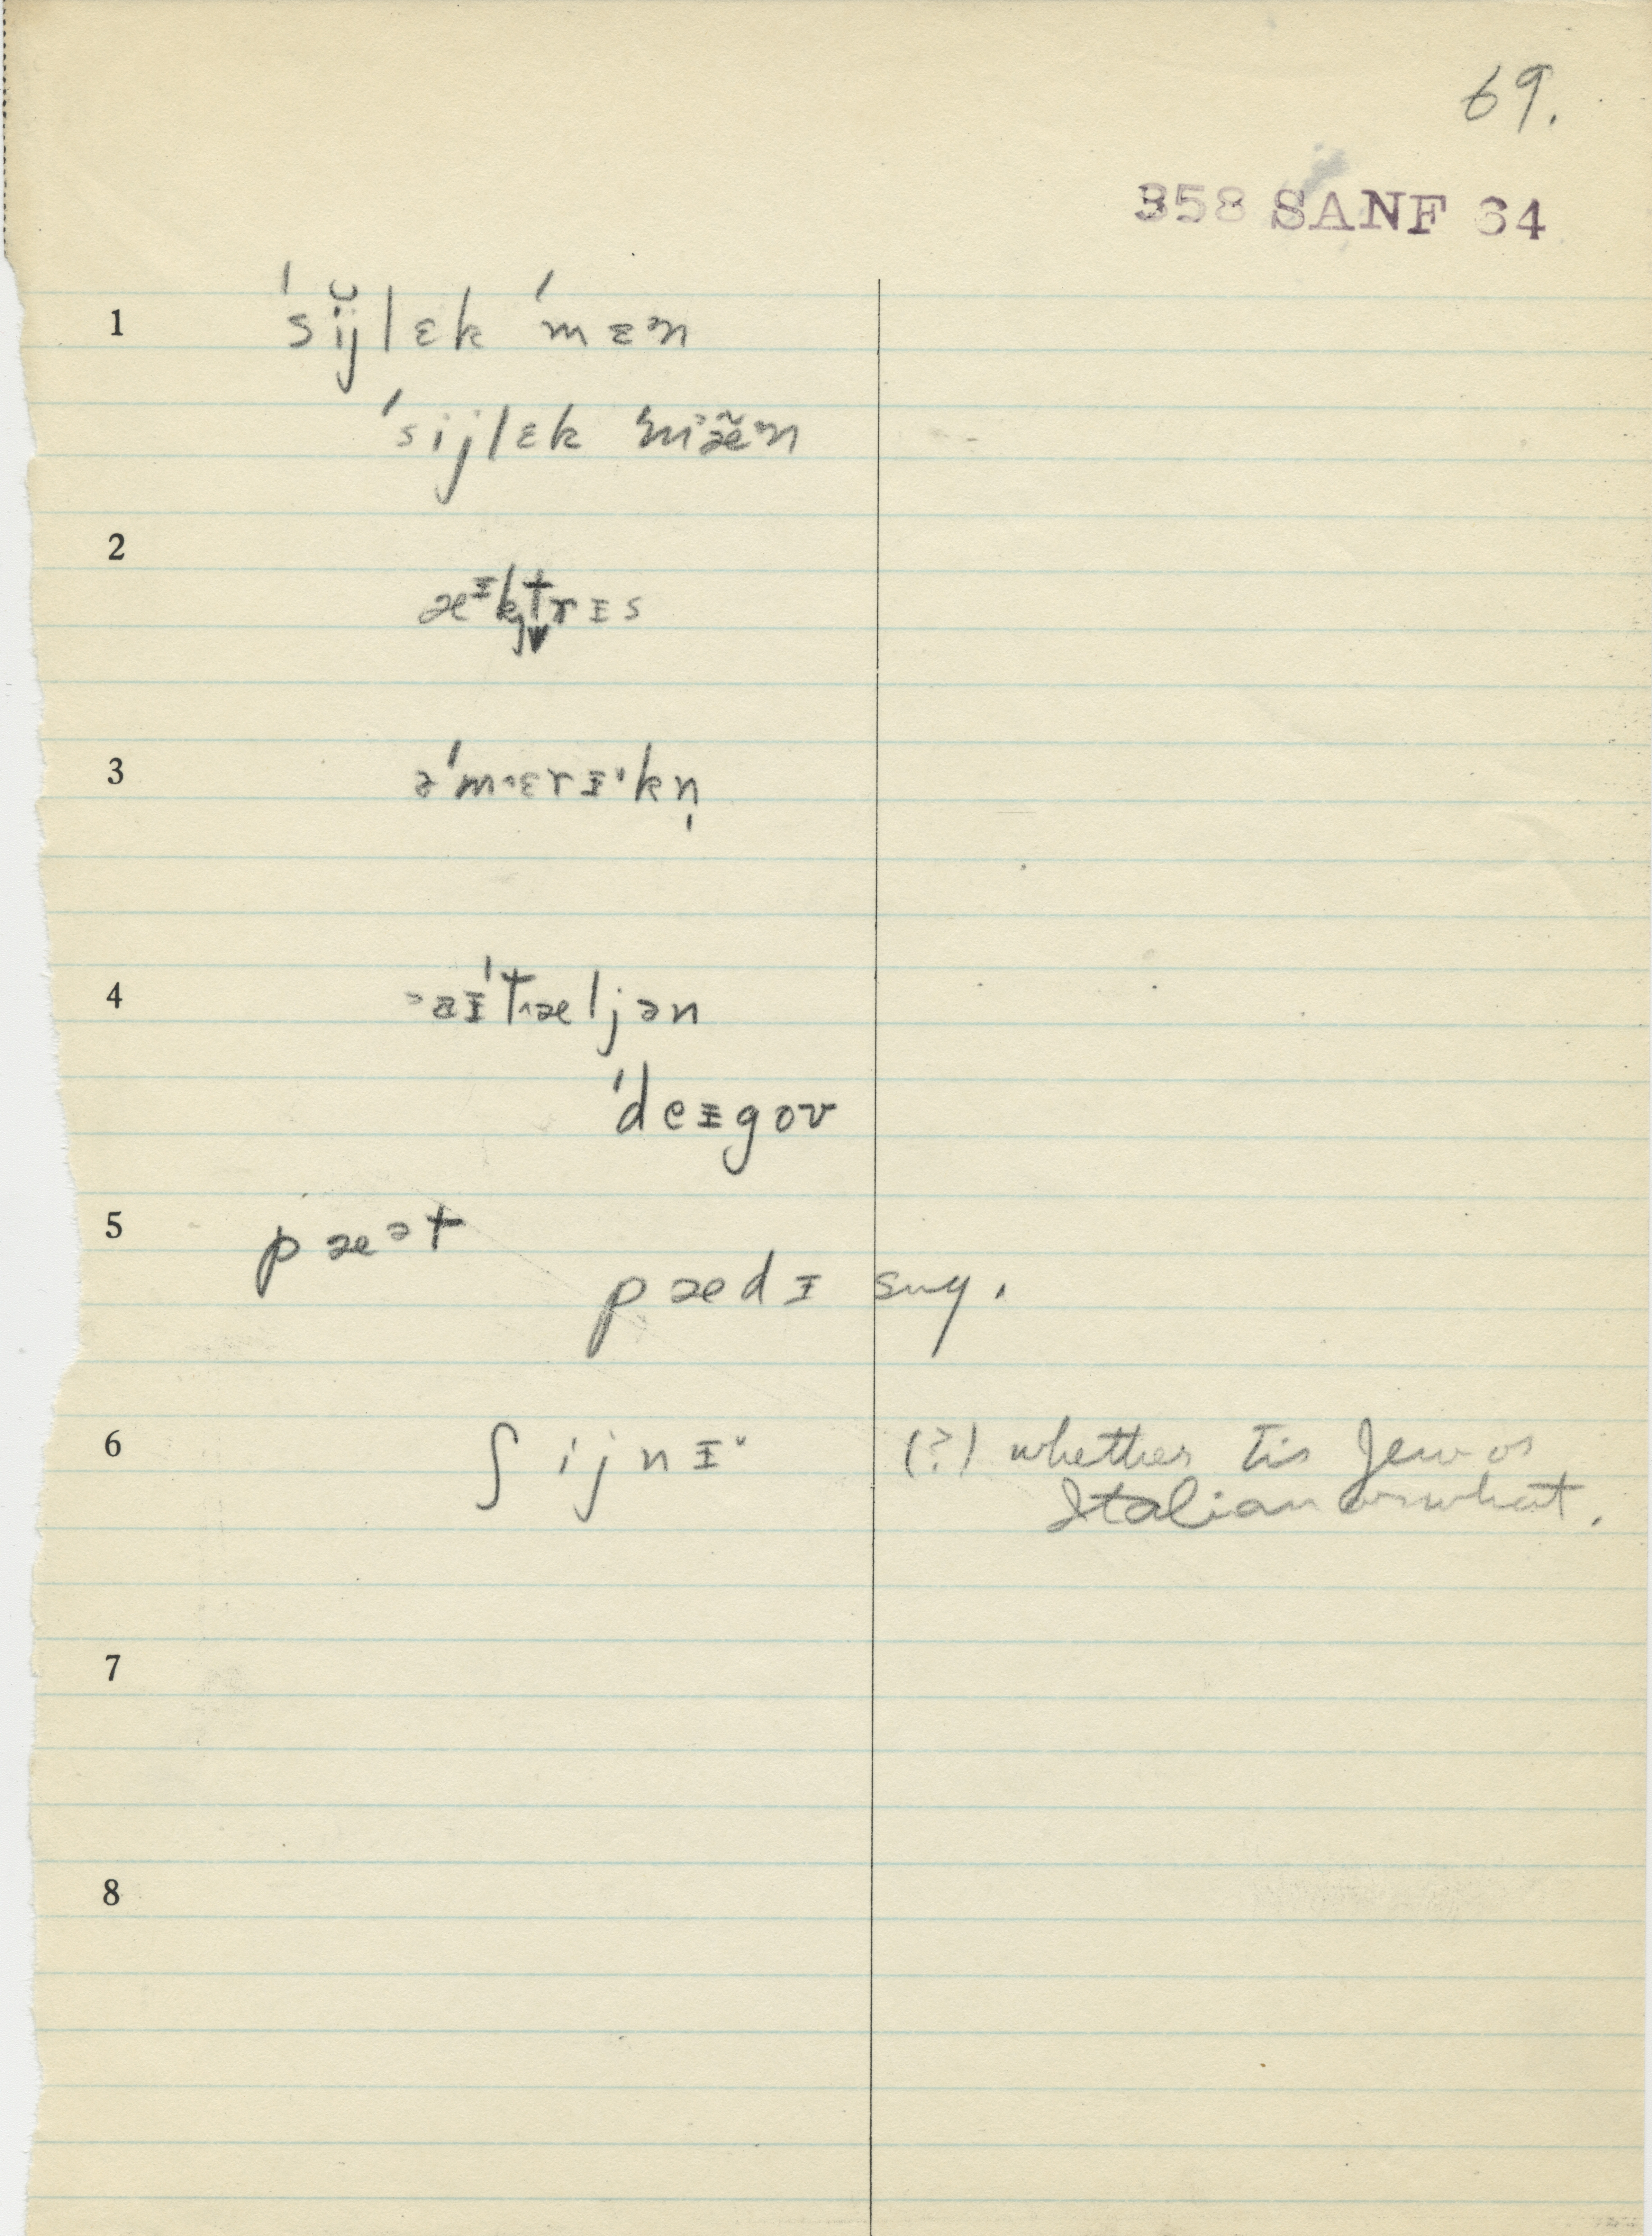 69.
358 SANF 64
1 ˈsij̆lɛk ˈmɛᵊn
ˈsijlɛk ˈmᵊæ̃ᵊn
2 æᶦktrɪs
3 əˈmɛrɪkn̩
4 aɪˈtæljən
ˈdeɪgoʊ
5 pæᵊt
pædɪ sug.
6 ʃijnɪ (?) whether tis Jew or
Italian or what.
7
8